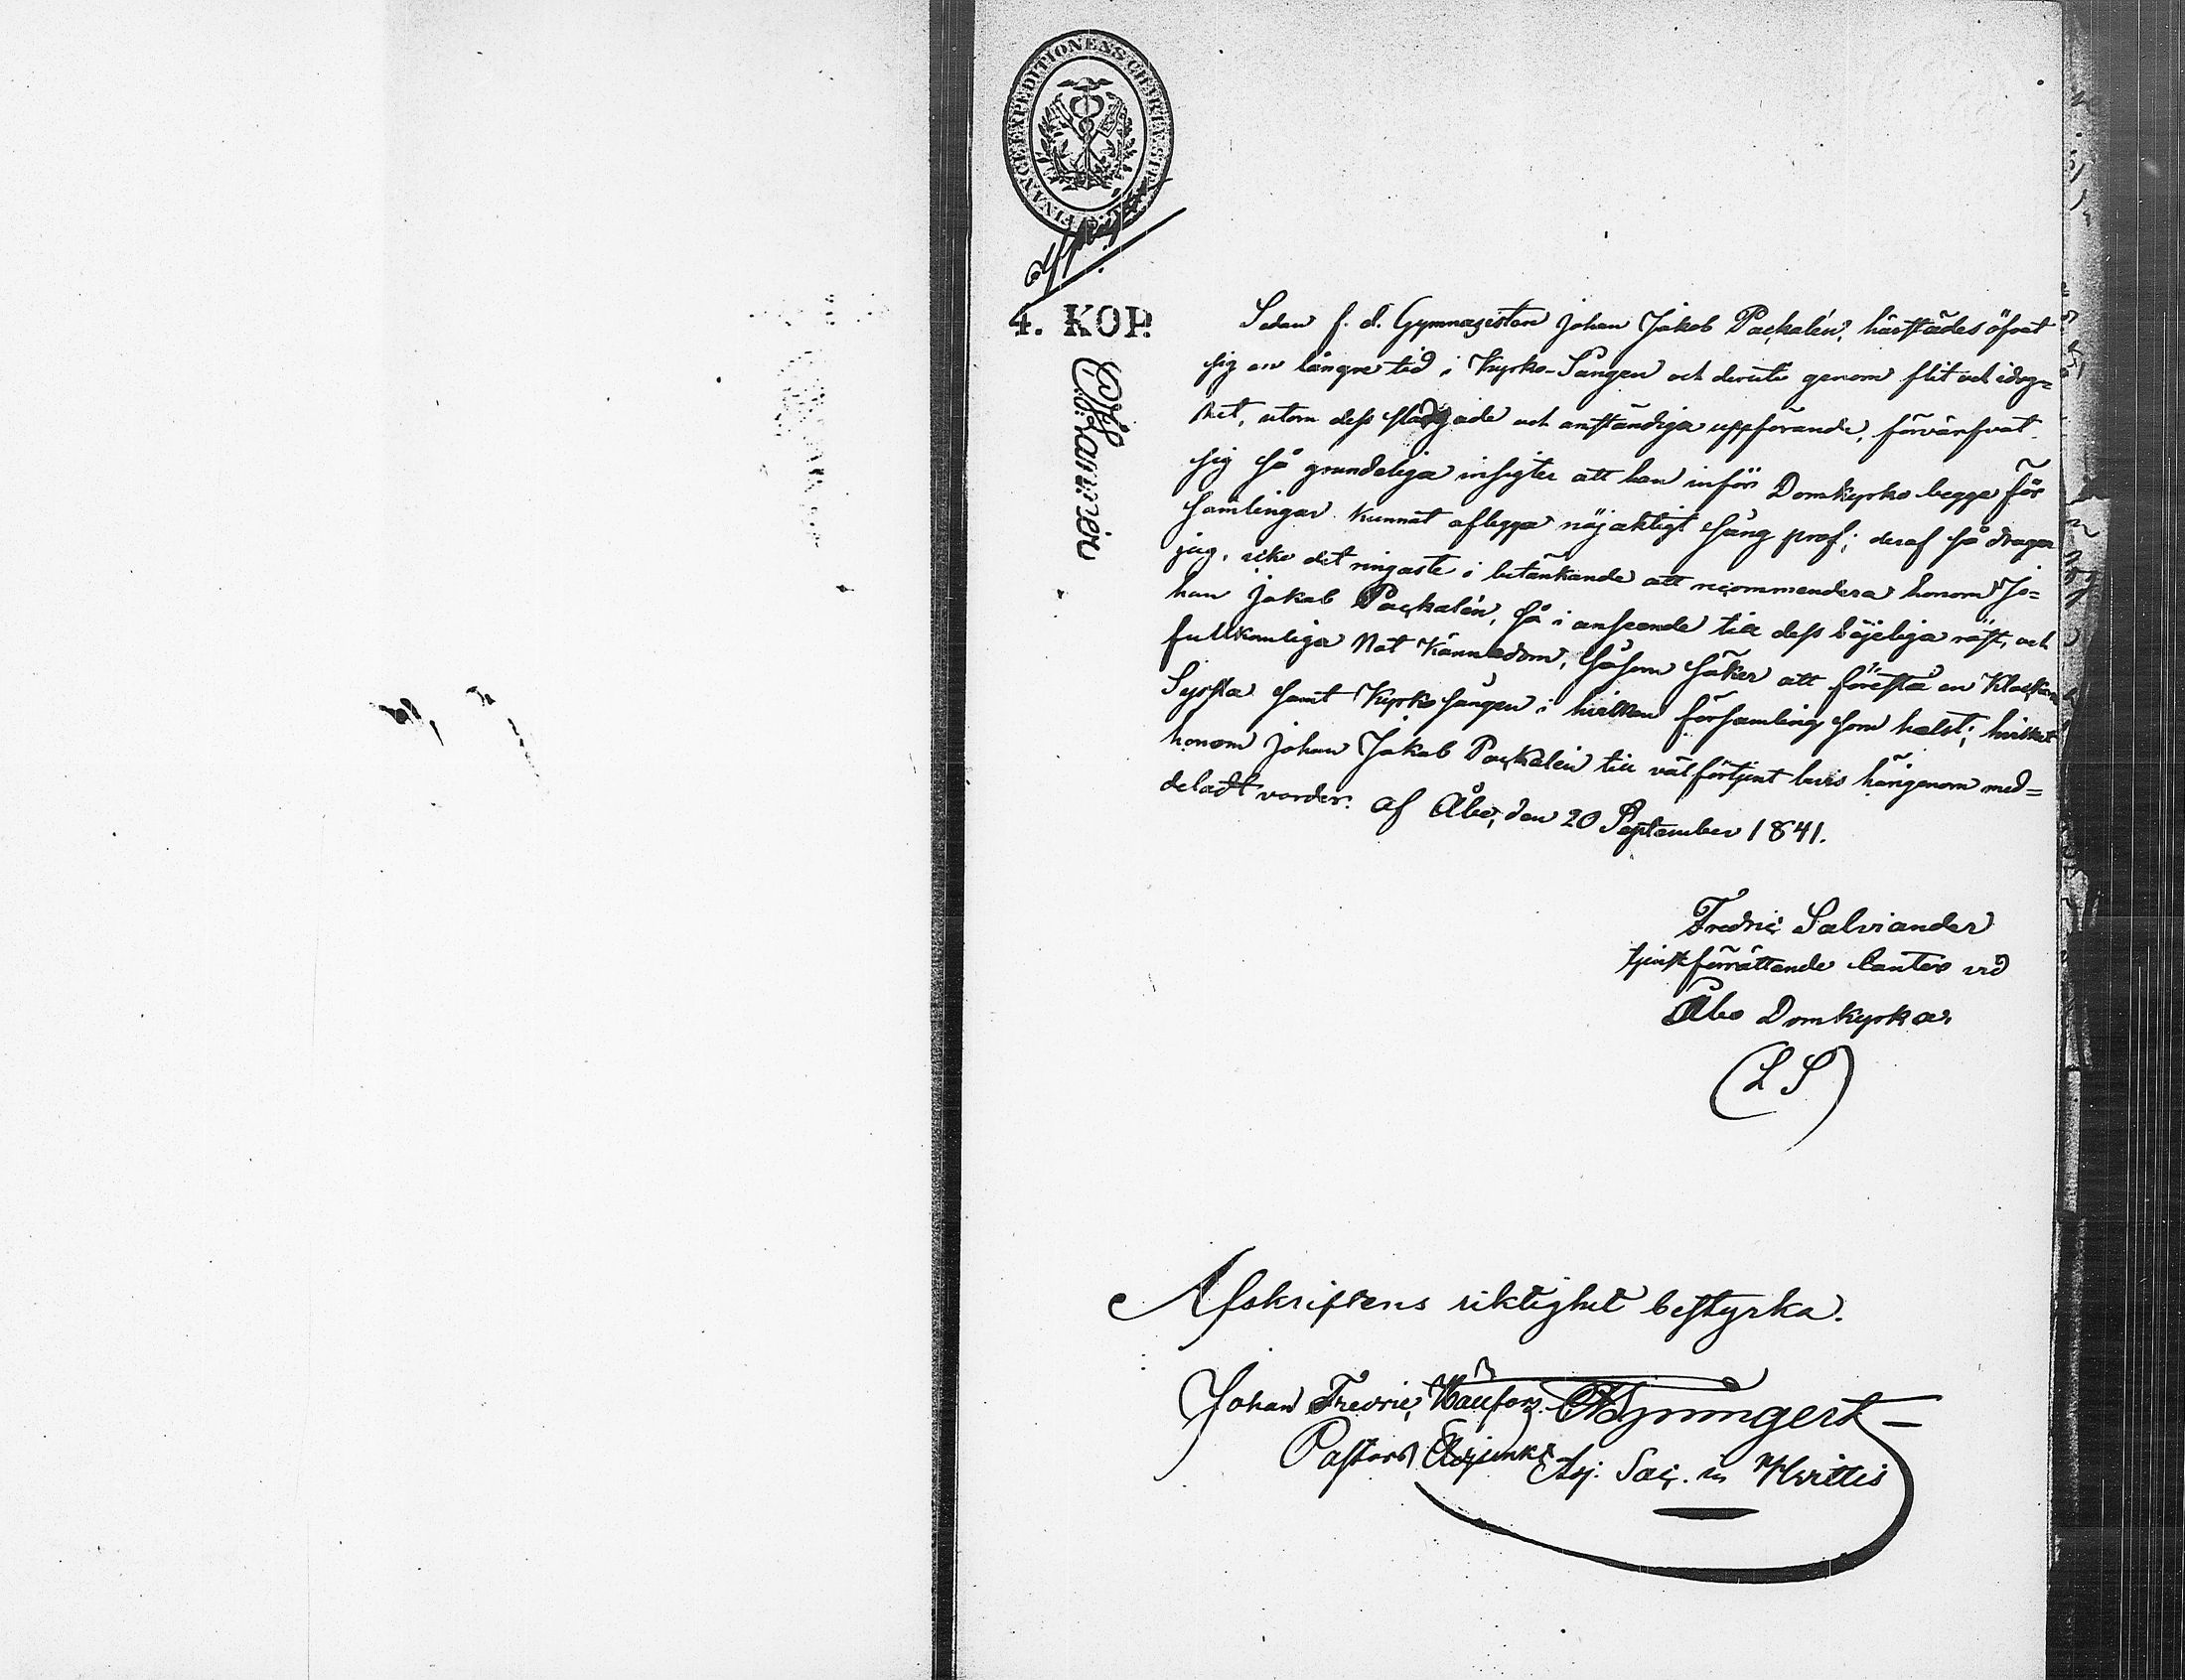 FINANCE EXPEDITIONENS CHARTÆ
Afskrift
4. KOP.
Sedan f. d. Gymnasisten Johan Jakob Packalén, härstädes öfvat
sig en längre tid i Kyrko-Sången och deruti genom flit och idog=
het, utom dess stadgade och anständiga uppförande, förvärfvat
sig så grundeliga insigter att han inför Domkyrko begge För
samlingar kunnat aflegga nöjaktigt sång prof; deraf så drager
jag, icke det ringaste i betänkande att recommendera honom Jo=
han Jakob Packalén, så i anseende till dess böjeliga röst, och
fullkomliga Not Kännedom, såsom säker att förestå en Klockare
Syssla samt Kyrko sången i hvilken församling som helst; hvilket
honom Johan Jakob Packalén till välförtjent bevis härigenom med=
deladt varder. Af Åbo, den 20 September 1841.
Fredric Salviander
tjenstförrättande Cantor vid
Åbo Domkyrka
(L S)
Afskriftens riktighet bestyrka.
Johan Fredric
Pastors Adjunkt Adj. Sac. in Hvittis